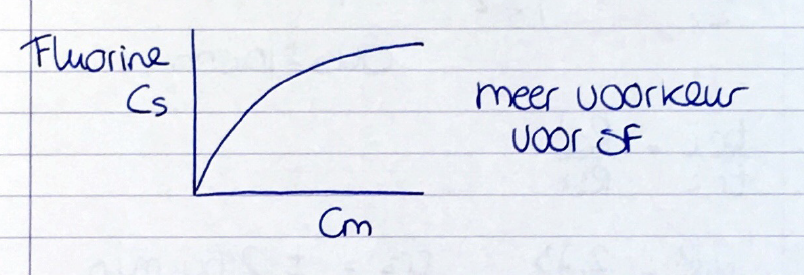 Fluorine
Cs
meer voorkeur
voor SF
Cm